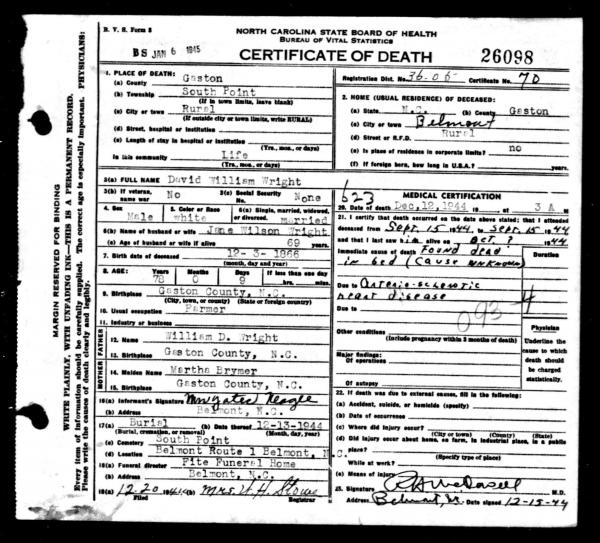 NORTH CAROLINA STATE BOARD OF HEALTH
BUREAU OF VITAL STATISTICS
CERTIFICATE OF DEATH
B. V. S. Form 8
BS JAN 6 1945
26098
Registration Dist. No. 36.05 Certificate No. 70
MARGIN RESERVED FOR BINDING
WRITE PLAINLY, WITH UNFADING INK—THIS IS A PERMANENT RECORD.
Every item of information should be carefully supplied. The correct age is especially important. PHYSICIANS:
Please write the causes of death clearly and legibly.
1. PLACE OF DEATH:
(a) County Gaston
(b) Township South Point
(If in town limits, leave blank)
(c) City or town Rural
(If outside city or town limits, write RURAL)
(d) Street, hospital or institution
(e) Length of stay in hospital or institution
(Yrs., mos., or days)
In this community Life
(Yrs., mos., or days)
2. HOME (USUAL RESIDENCE) OF DECEASED:
(a) State N.C. (b) County Gaston
(c) City or town Belmont
(d) Street or R.F.D. Rural
(e) Is place of residence in corporate limits? no
(f) If foreign born, how long in U.S.A.?
3(a) FULL NAME David William Wright
3(b) If veteran, name war No
3(c) Social Security No. None
4. Sex Male
5. Color or Race white
6(a) Single, married, widowed, or divorced. married
6(b) Name of husband or wife Jane Wilson Wright
(c) Age of husband or wife if alive 69 years
7. Birth date of deceased 12- 3- 1866
(month, day and year)
8. AGE: Years 78 Months 0 Days 9 If less than one day hrs. min.
9. Birthplace Gaston County, N.C.
(City, town, or county) (State or foreign country)
10. Usual occupation Farmer
11. Industry or business
FATHER
12. Name William D. Wright
13. Birthplace Gaston County, N.C.
MOTHER
14. Maiden Name Martha Brymer
15. Birthplace Gaston County, N.C.
16(a) Informant's Signature Mrs Yates Neagle
(b) Address Belmont, N.C.
17(a) Burial (b) Date thereof 12-13-1944
(Burial, cremation, or removal) (Month, day, year)
(c) Cemetery South Point
(d) Location Belmont Route 1 Belmont, N.C.
18(a) Funeral director Fite Funeral Home
(b) Address Belmont, N.C.
19(a) 12-20 1944 (b) Mrs. W. H. Stowe
Filed Registrar
623
MEDICAL CERTIFICATION
20. Date of death Dec, 12, 1944 3 A M
21. I certify that death occurred on the date above stated; that I attended
deceased from Sept. 15 1944 to Sept. 15 1944
and that I last saw him alive on Oct. ? 1944
Immediate cause of death Found dead
in bed (Cause unknown)
Duration
Due to Arterio-sclerotic
heart disease
Due to
093 4
Other conditions
(Include pregnancy within 3 months of death)
Major findings:
Of operations
Of autopsy
Physician
Underline the cause to which death should be charged statistically.
22. If death was due to external causes, fill in the following:
(a) Accident, suicide, or homicide (specify)
(b) Date of occurrence
(c) Where did injury occur?
(City or town) (County) (State)
(d) Did injury occur about home, on farm, in industrial place, in a public
place?
(Specify type of place)
While at work?
(e) Means of injury
23. Signature M.D.
Address Belmont, Date signed 12-15-44